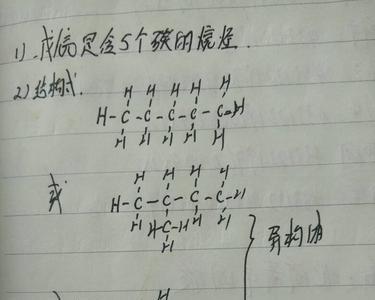 1) 戊烷是含5个碳的烷烃.
2) 结构式.
H H H H H
H-C-C-C-C-C-H
H H H H H
或
H H H H
H-C-C-C-C-H
H H-C-H H H
H
异构体
H